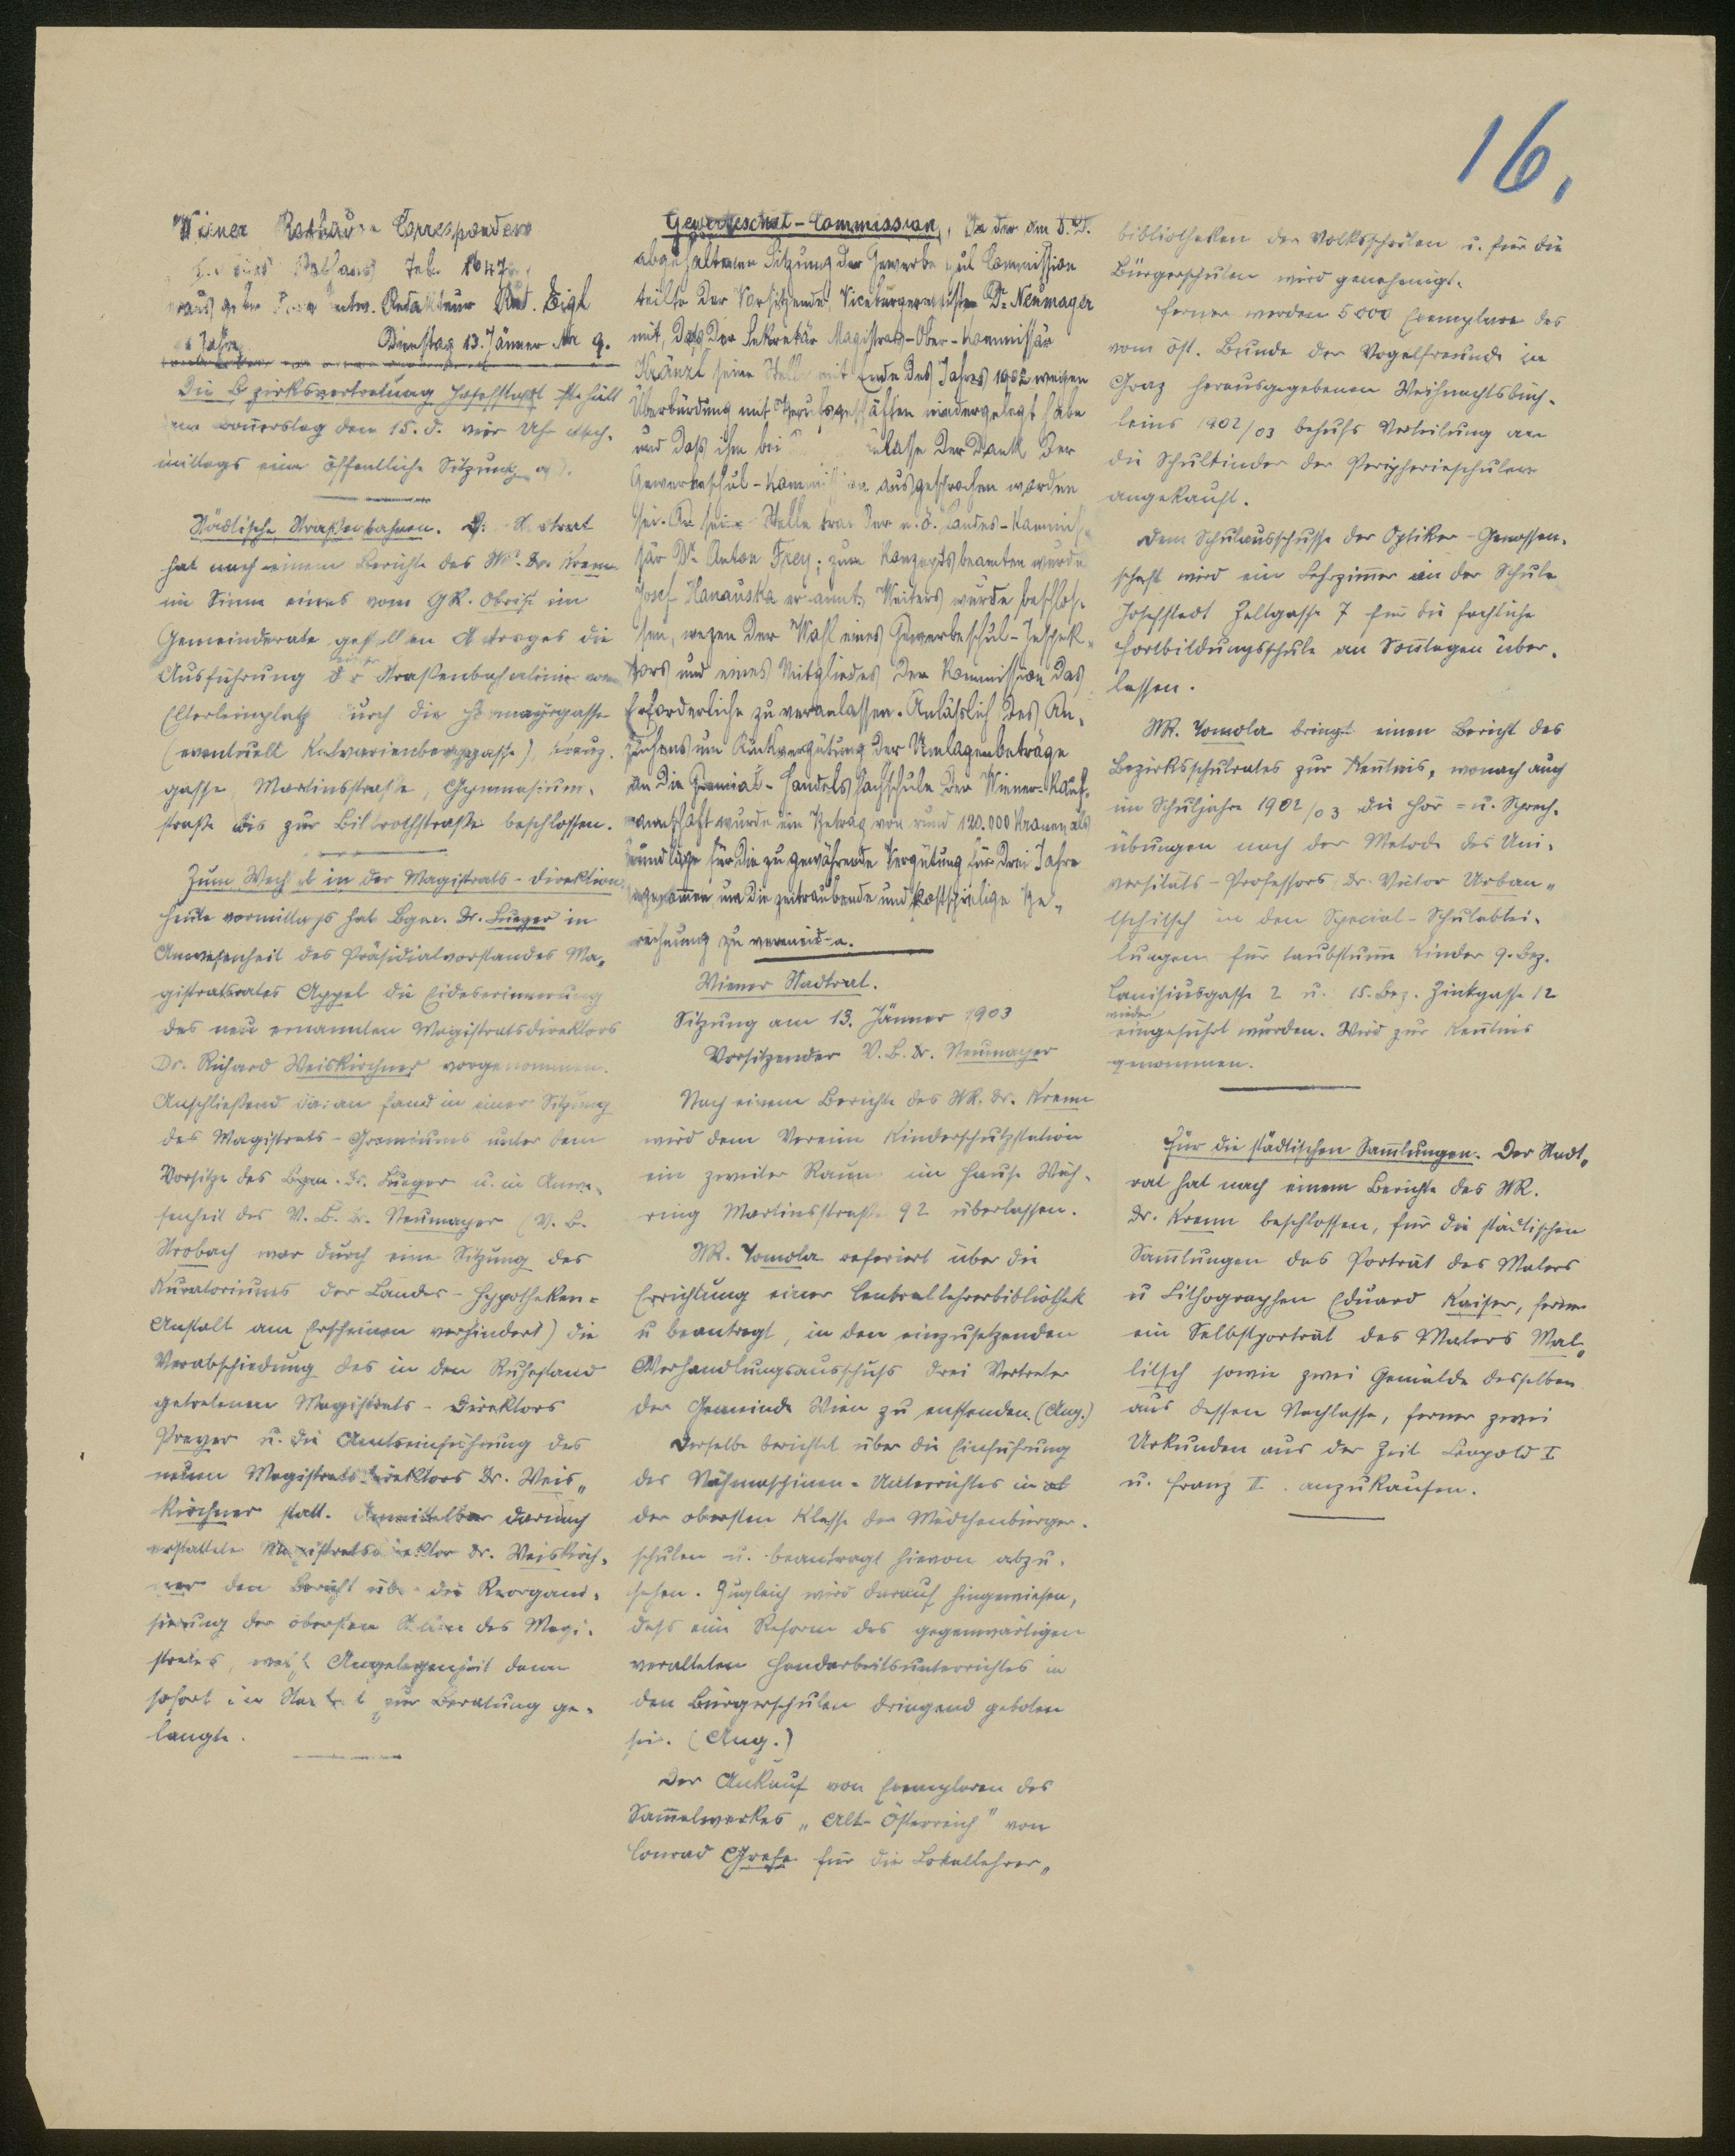 16.
Wiener Rathaus Correspondenz
Neues Rathaus Tel. 1647
Herausgeber verantw. Redakteur Rud. Eigl
Jahrg. Dienstag 13. Jänner Nr 9.
Die Bezirksvertretung Josefstadt hält
am Donnerstag den 15. d. vier Uhr nach-
mittags eine öffentliche Sitzung ab.
Städtische Straßenbahnen. D. Stadtrat
hat nach einem Berichte des StR. Dr. Krenn
im Sinne eines vom GR. Obrist im
Gemeinderate gestellten Antrages die
Ausführung der Straßenbahnlinie vom
Elterleinplatz durch die Hormayrgasse
(eventuell Kalvarienberggasse), Kreuz-
gasse, Martinsstraße, Gymnasium-
straße bis zur Billrothstraße beschlossen.
Zum Wechsel in der Magistrats-Direktion.
Heute vormittags hat Bgm. Dr. Lueger in
Anwesenheit des Präsidialvorstandes Ma-
gistratsrates Appel die Eideserinnerung
des neu ernannten Magistratsdirektors
Dr. Richard Weiskirchner vorgenommen.
Anschließend daran fand in einer Sitzung
des Magistrats-Gremiums unter dem
Vorsitze des Bgm. Dr. Lueger u. in Anwe-
senheit des V. B. Dr. Neumayer (V. B.
Strobach war durch eine Sitzung des
Kuratoriums der Landes-Hypotheken-
Anstalt am Erscheinen verhindert) die
Verabschiedung des in den Ruhestand
getretenen Magistrats-Direktors
Preyer u. die Amtseinführung des
neuen Magistratsdirektors Dr. Weis-
kirchner statt. Unmittelbar darnach
erstattete Magistratsdirektor Dr. Weiskirch-
ner den Bericht über die Reorgani-
sierung der obersten des Magi-
strates, welche Angelegenheit dann
sofort im Stadtrat zur Beratung ge-
langte.
Gewerbeschul-Commission. In der am 8. d.
abgehaltenen Sitzung der Gewerbeschul Commission
teilte der Vorsitzende Vicebürgermeister Dr. Neumayer
mit, daß der Sekretär Magistrats-Ober-Kommissär
Kränzl seine Stelle mit Ende des Jahres 1902 wegen
Überbürdung mit Berufsgeschäften niedergelegt habe
und daß ihm bei Anlasse der Dank der
Gewerbeschul-Kommission ausgesprochen worden
sei. An seine Stelle trat der n. ö. Landes-Kommis-
sär Dr. Anton Frey; zum Konzeptsbeamten wurde
Josef Hanauska ernannt. Weiters wurde beschlos-
sen, wegen der Wahl eines Gewerbeschul-Inspek-
tors und eines Mitgliedes der Kommission das
Erforderliche zu veranlassen. Anläßlich des An-
suchens um Rückvergütung der Umlagenbeträge
an die Gremial-Handelsfachschule der Wiener-Kauf-
mannschaft wurde ein Betrag von rund 120.000 Kronen als
Grundlage für die zu gewährende Vergütung für drei Jahre
angenommen um die zeitraubende und kostspielige Be-
rechnung zu vermeiden.
Wiener Stadtrat.
Sitzung am 13. Jänner 1903
Vorsitzender V. B. Dr. Neumayer
Nach einem Berichte des StR. Dr. Krenn
wird dem Vereine Kinderschutzstation
ein zweiter Raum im Hause Wäh-
ring Martinsstraße 92 überlassen.
StR. Tomola referiert über die
Errichtung einer Centrallehrerbibliothek
u beantragt, in den einzusetzenden
Verhandlungsausschuß drei Vertreter
der Gemeinde Wien zu entsenden (Ang.)
Derselbe berichtet über die Einführung
des Nähmaschinen-Unterrichtes in
der obersten Klasse der Mädchenbürger-
schulen u. beantragt hievon abzu-
sehen. Zugleich wird darauf hingewiesen,
daß eine Reform des gegenwärtigen
veralteten Handarbeitsunterrichtes in
den Bürgerschulen dringend geboten
sei. (Ang.)
Der Ankauf von Exemplaren des
Sam̅elwerkes „Alt-Österreich" von
Conrad Grefe für die Lokallehrer-
bibliotheken der Volksschulen u. für die
Bürgerschulen wird genehmigt.
Ferner werden 5000 Exemplare des
vom öst. Bunde der Vogelfreunde in
Graz herausgegebenen Weihnachtsbüch-
leins 1902/03 behufs Verteilung an
die Schulkinder der Peripherieschulen
angekauft.
Dem Schulausschusse der Optiker-Genossen-
schaft wird ein Lehrzim̅er in der Schule
Josefstadt Zeltgasse 7 für die fachliche
Fortbildungsschule an Son̅tagen über-
lassen.
StR. Tomola bringt einen Bericht des
Bezirksschulrates zur Ken̅tnis, wonach auch
im Schuljahre 1902/03 die Hör- u. Sprech-
übungen nach der Metode des Uni-
versitäts-Professors Dr. Victor Urban-
tschitsch in den Special-Schulabtei-
lungen für taubstum̅e Kinder 9. Bez.
Canisiusgasse 2 u. 15. Bez. Zinkgasse 12
wieder
eingeführt wurden. Wird zur Ken̅tnis
genommen.
Für die städtischen Sam̅lungen. Der Stadt-
rat hat nach einem Berichte des StR.
Dr. Krenn beschlossen, für die städtischen
Sam̅lungen das Porträt des Malers
u Lithographen Eduard Kaiser, ferner
ein Selbstporträt des Malers Mal-
litsch sowie zwei Gemälde desselben
aus dessen Nachlasse, ferner zwei
Urkunden aus der Zeit Leopold I
u. Franz II. anzukaufen.